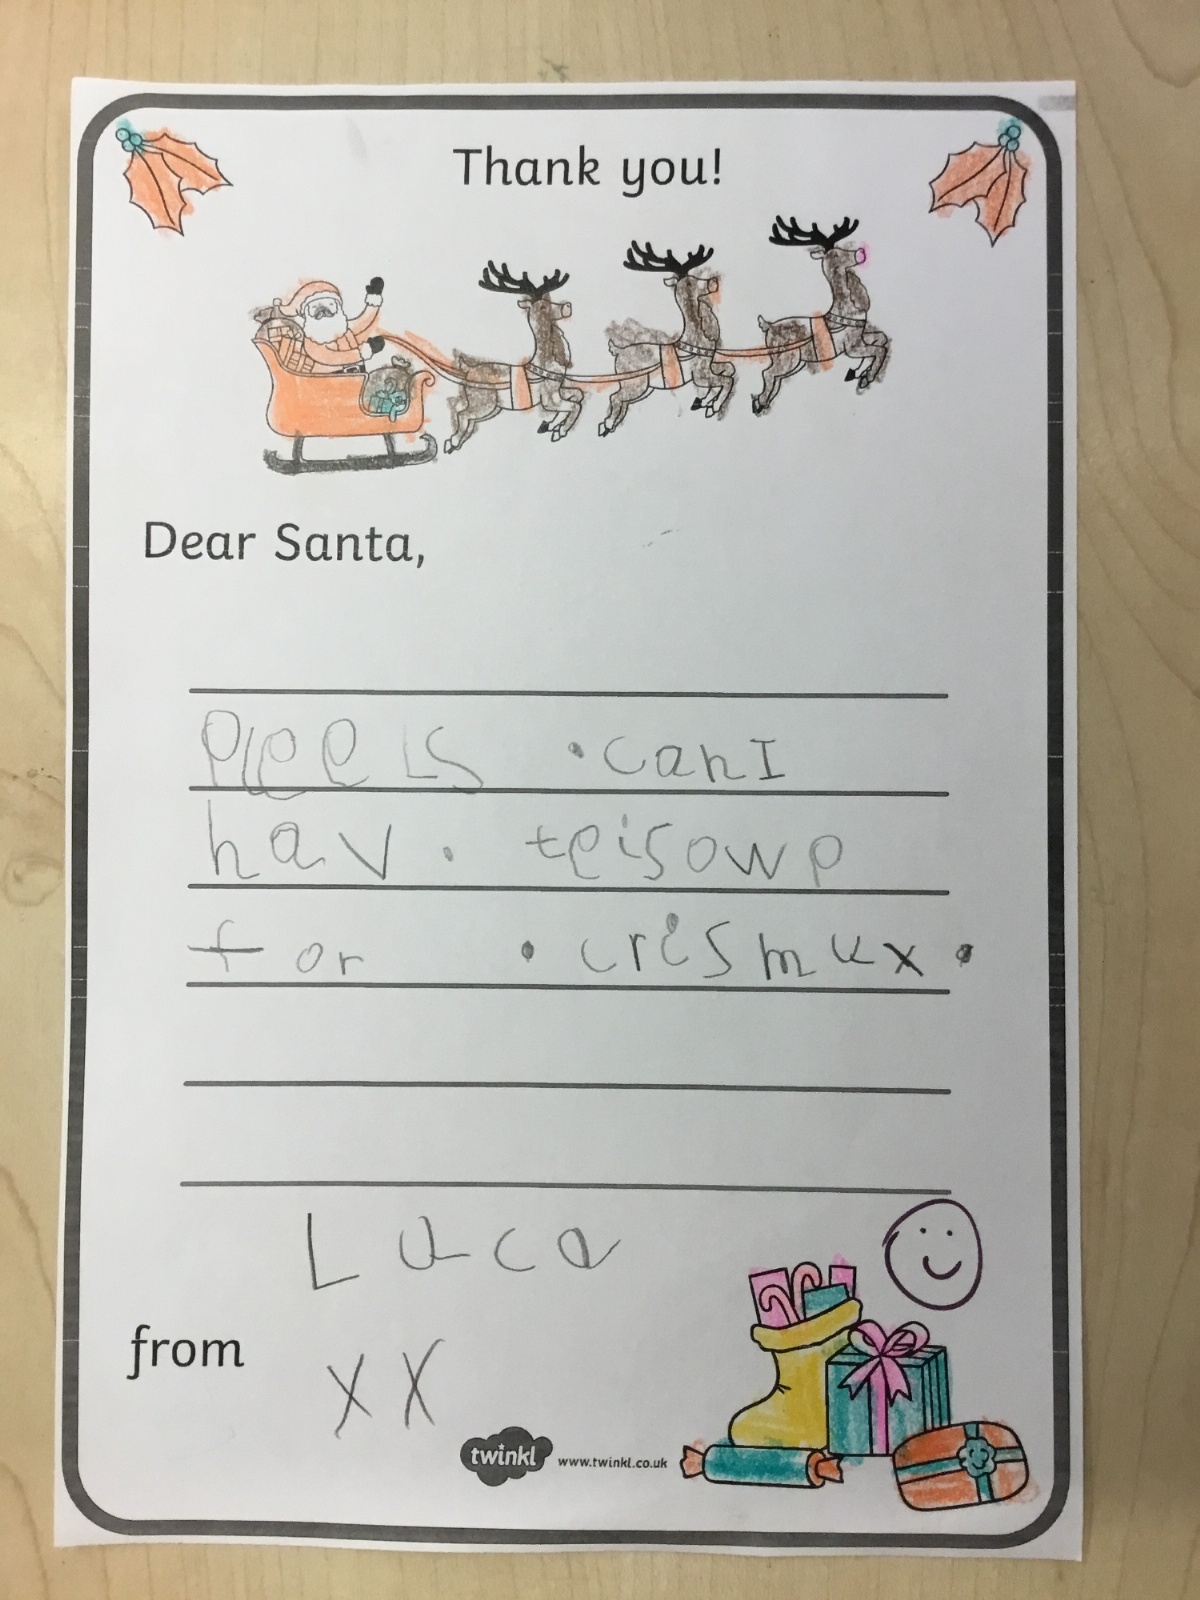 Thank you!
Dear Santa,
pleels • can I
hav . teisowp
for • crismux •
Luca
from
xx
twinkl www.twinkl.co.uk